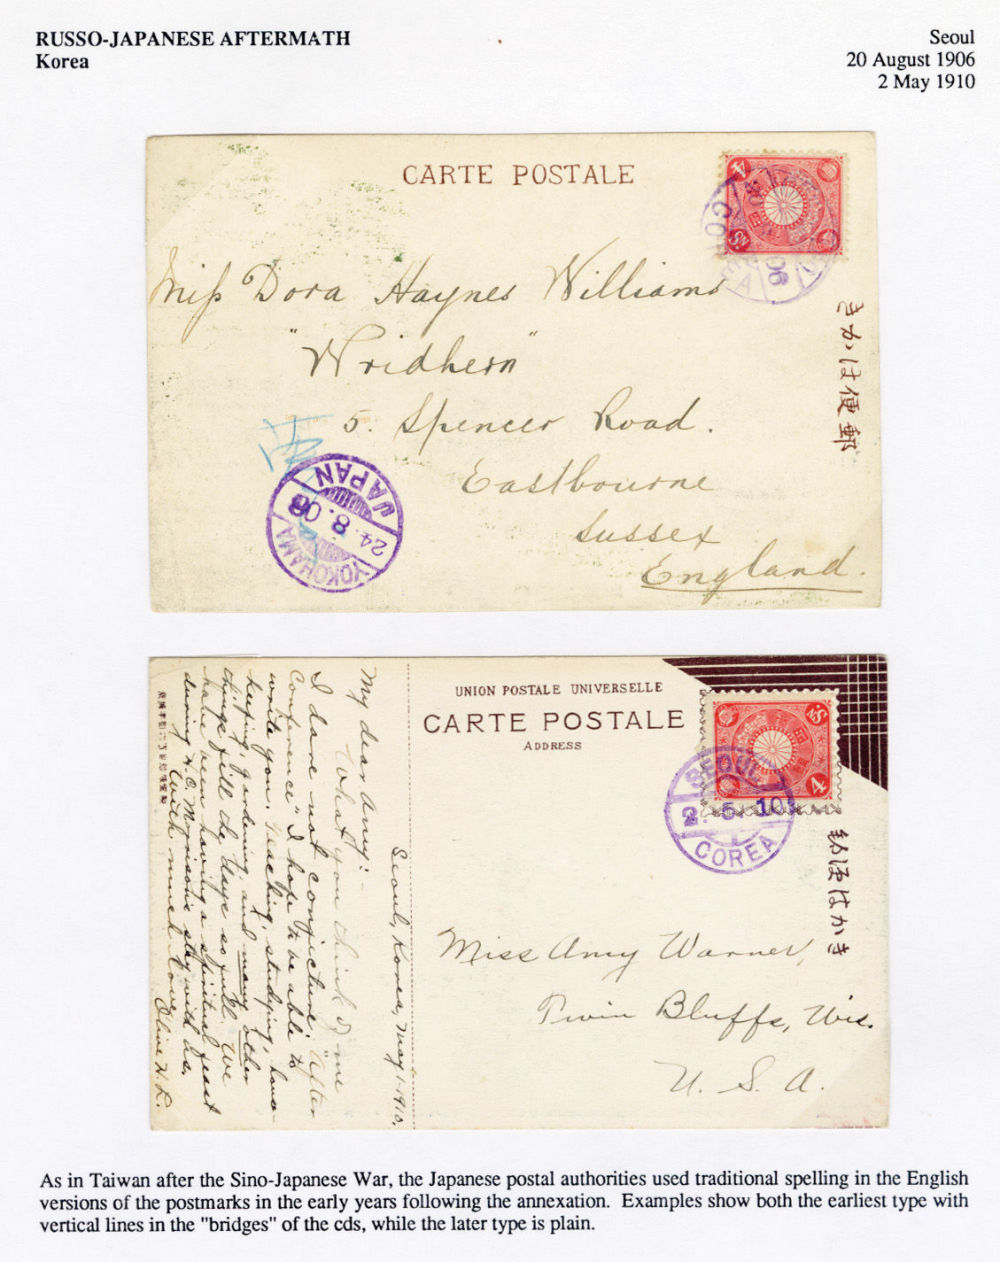 RUSSO-JAPANESE AFTERMATH
Korea
Seoul
20 August 1906
2 May 1910
CARTE POSTALE
4
Sn
COREA
06
Miss Dora Haynes Williams
"Wridhern"
5. Spencer Road.
Eastbourne
Sussex
England.
きかは便郵
YOKOHAMA
24.8.06
JAPAN
UNION POSTALE UNIVERSELLE
CARTE POSTALE
ADDRESS
Sn
4
SEOUL
2.5.10
COREA
郵便はかき
Miss Amy Warner,
Twin Bluffs, Wis.
U. S. A.
Seoul, Korea, May 1-1910,
My dear Amy:-
What you think of me
I dare not conjecture. "After
Conference" I hope to be able to
write you. Teaching, studying, house-
keeping, gardening and many other
things fill the days so full. We
have been having a spiritual feast
during H.C. Morrison's stay with us.
With much love,
Olive H. R.
As in Taiwan after the Sino-Japanese War, the Japanese postal authorities used traditional spelling in the English
versions of the postmarks in the early years following the annexation. Examples show both the earliest type with
vertical lines in the "bridges" of the cds, while the later type is plain.